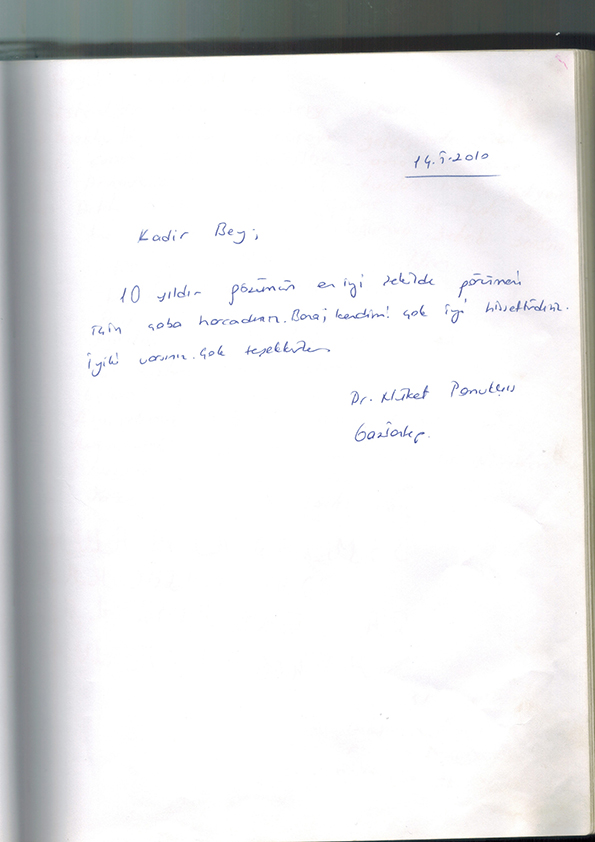 14.I.2010
Kadir Bey;
10 yıldır gözümün en iyi şekilde görünmesi
için çaba harcadınız. Bana; kendimi çok iyi hissettirdiniz.
İyiki varsınız. Çok teşekkürler
Dr. Nüket
Gaziantep.